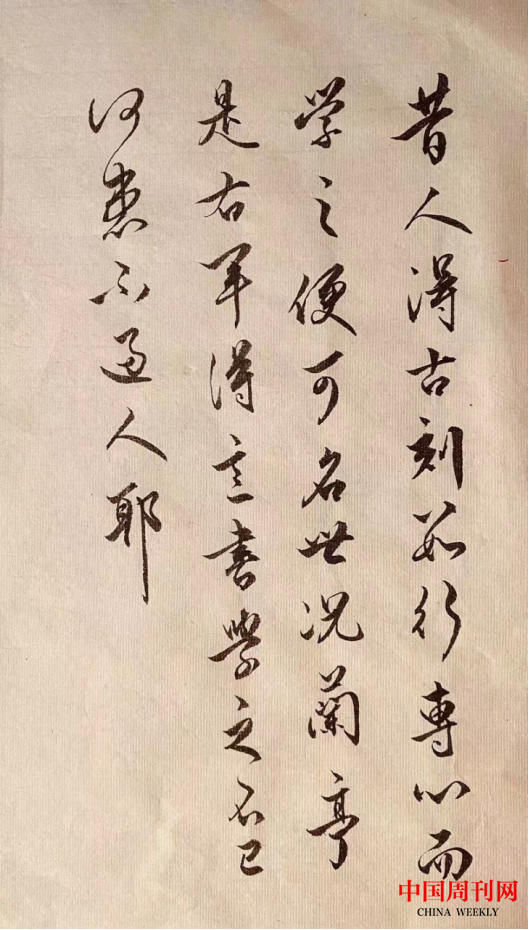 昔人得古刻數行專心而
學之便可名世況蘭亭
是右軍得意書學之不已
何患不過人耶
中国周刊网
CHINA WEEKLY